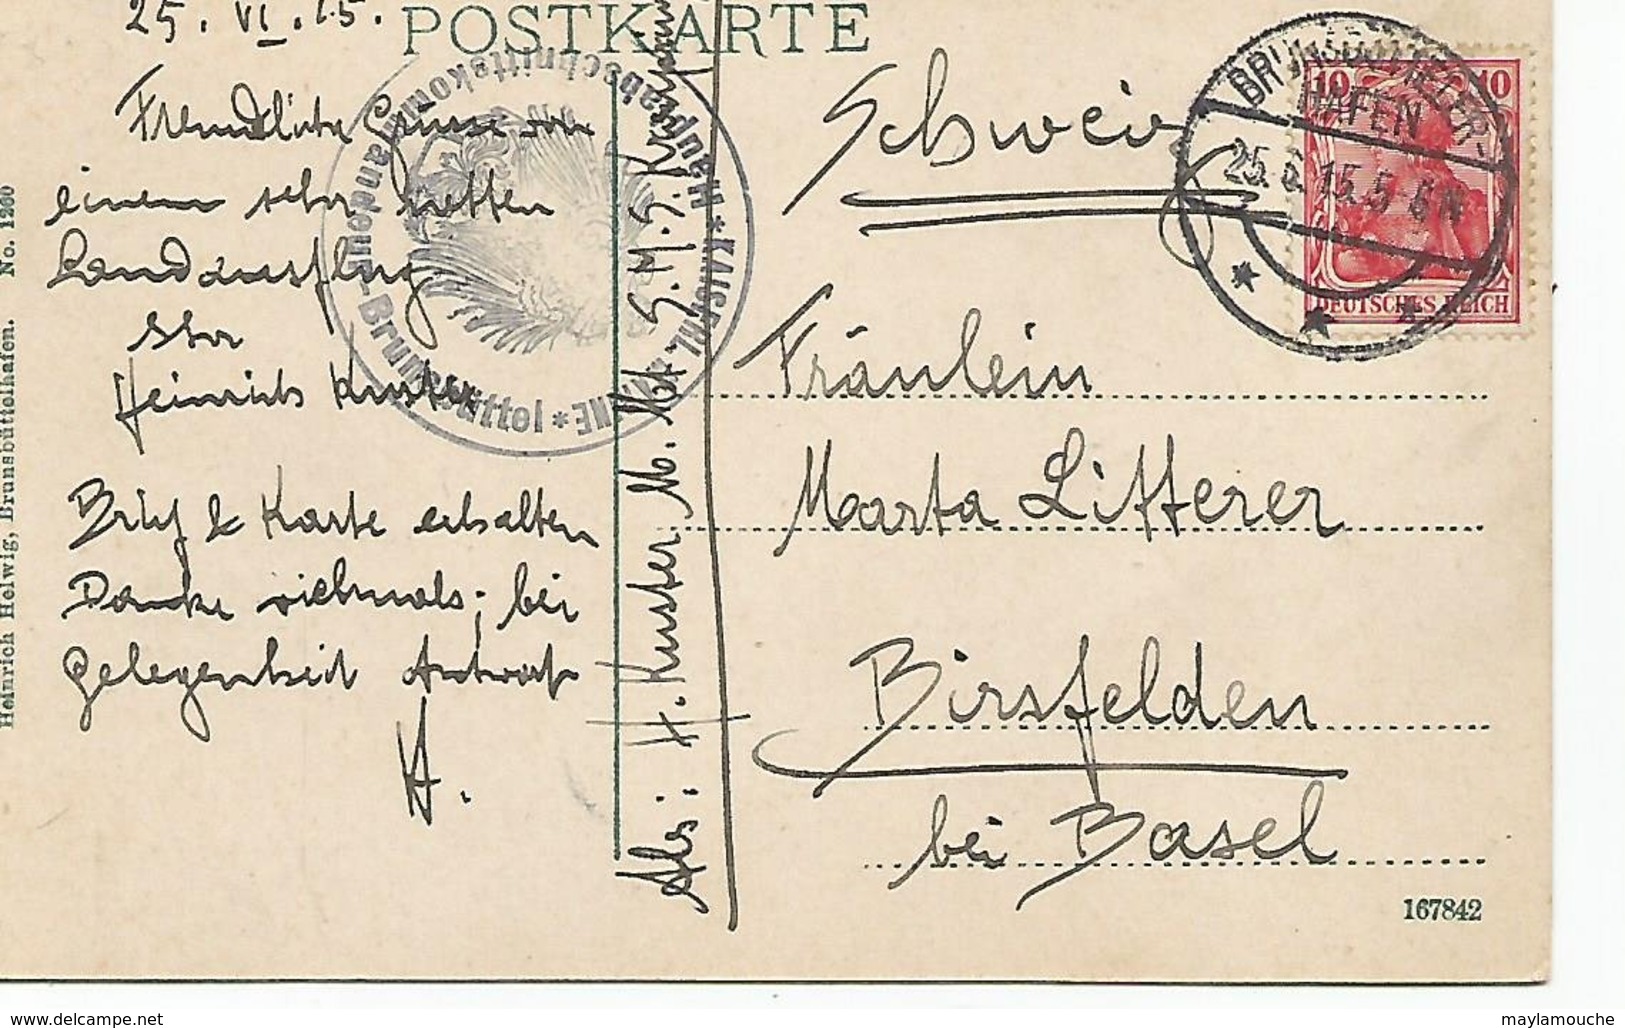 25. VI. 15.
POSTKARTE
Freundliche Grüsse von
einem sehr netten
Landausflug
Ihr
Heinrich Kuster
Brief & Karte erhalten
Danke vielmals; bei
Gelegenheit Antwort
H.
Abs: H. Kuster M. Mt. S.M.S.
KAISERL. MARINE * Hauptabschnittskommandeur-Brunsbüttel *
Schweiz
Fräulein
Marta Litterer
Birsfelden
bei Basel
BRUNSBÜTTELER-
HAFEN
25.6.15.5-6N
10 10
DEUTSCHES REICH
Heinrich Helwig, Brunsbüttelhafen. No. 1260
167842
www.delcampe.net
maylamouche